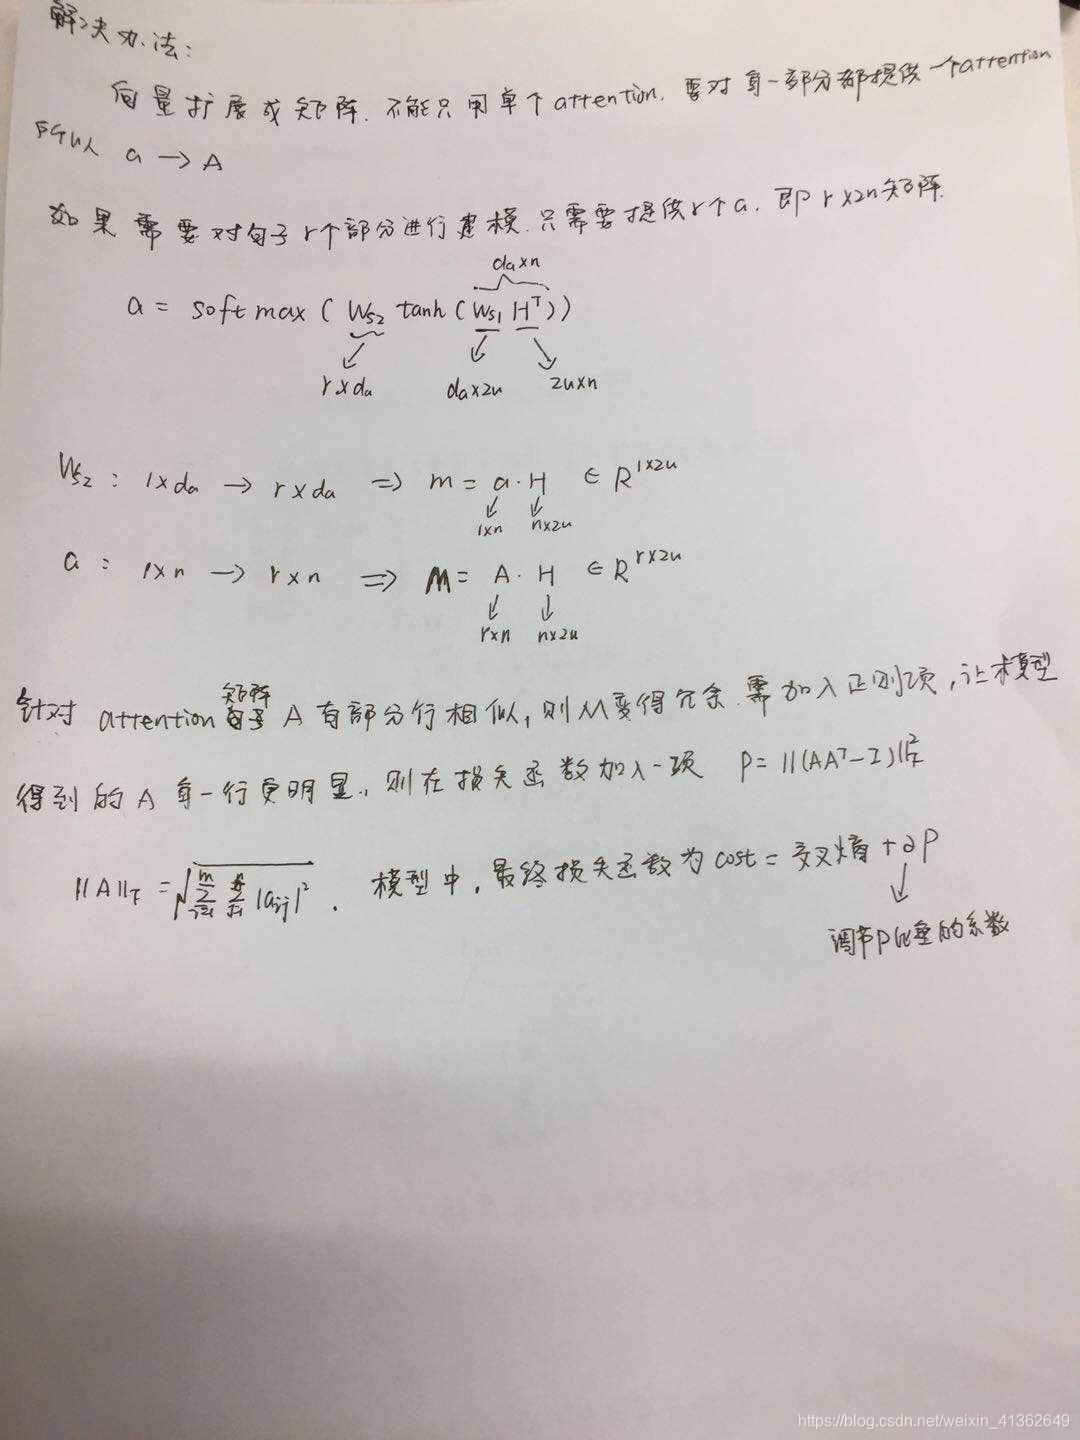 解决办法:
向量扩展成矩阵. 不能只用单个attention. 要对每一部分都提供一个attention
所以 a → A
如果需要对句子r个部分进行建模. 只需要提供r个a. 即r×2n矩阵.
da×n
a = softmax ( Ws2 tanh ( Ws1 H^T ) )
r×da da×2u 2u×n
Ws2 : 1×da → r×da ⇒ m = a·H ∈ R^1×2u
1×n n×2u
a : 1×n → r×n ⇒ M = A·H ∈ R^r×2u
r×n n×2u
针对 attention 矩阵 A 有部分行相似, 则M变得冗余. 需加入正则项, 让模型
得到的A每一行更明显., 则在损失函数加入一项 P = ||(AA^T-I)||_F^2
||A||_F = √ ∑_{i=1}^m ∑_{j=1}^n |aij|^2 . 模型中, 最终损失函数为cost = 交叉熵 + ∂P
调节P比重的系数
https://blog.csdn.net/weixin_41362649